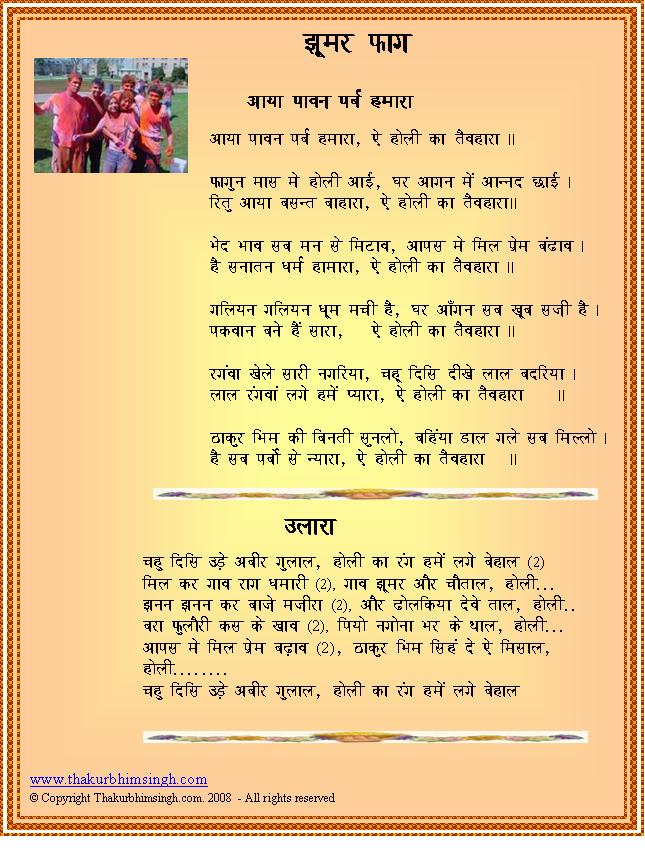 झूमर फाग
आया पावन पर्ब हमारा
आया पावन पर्ब हमारा, ऐ होली का तैवहारा ॥
फागुन मास मे होली आई, घर आगन में आन्नद छाई ।
रितु आया बसन्त बाहारा, ऐ होली का तैवहारा॥
भेद भाव सब मन से मिटाव, आपस मे मिल प्रेम बंढाव ।
है सनातन धर्म हामारा, ऐ होली का तैवहारा ॥
गलियन गलियन धूम मची है, घर आँगन सब खूब सजी है ।
पकवान बने हैं सारा, ऐ होली का तैवहारा ॥
रगंवा खेले सारी नगरिया, चहू दिसि दीखे लाल बदरिया ।
लाल रंगवां लगे हमें प्यारा, ऐ होली का तैवहारा ॥
ठाकुर भिम की बिनती सुनलो, बहिंया डाल गले सब मिल्लो ।
है सब पर्बो से न्यारा, ऐ होली का तैवहारा ॥
उलारा
चहु दिसि उड़े अबीर गुलाल, होली का रंग हमें लगे बेहाल (2)
मिल कर गाव राग धमारी (2), गाव झूमर और चौताल, होली...
झनन झनन कर बाजे मजीरा (2), और ढोलकिया देवे ताल, होली..
बरा फुलौरी कस के खाव (2), पियो नगोना भर के थाल, होली...
आपस मे मिल प्रेम बढ़ाव (2), ठाकुर भिम सिहं दे ऐ मिसाल,
होली........
चहु दिसि उड़े अबीर गुलाल, होली का रंग हमें लगे बेहाल
www.thakurbhimsingh.com
© Copyright Thakurbhimsingh.com. 2008 - All rights reserved